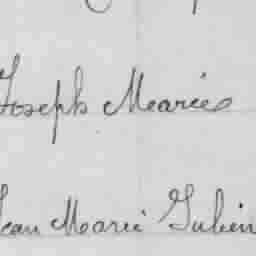 Joseph Marié
Jean Marié Julien